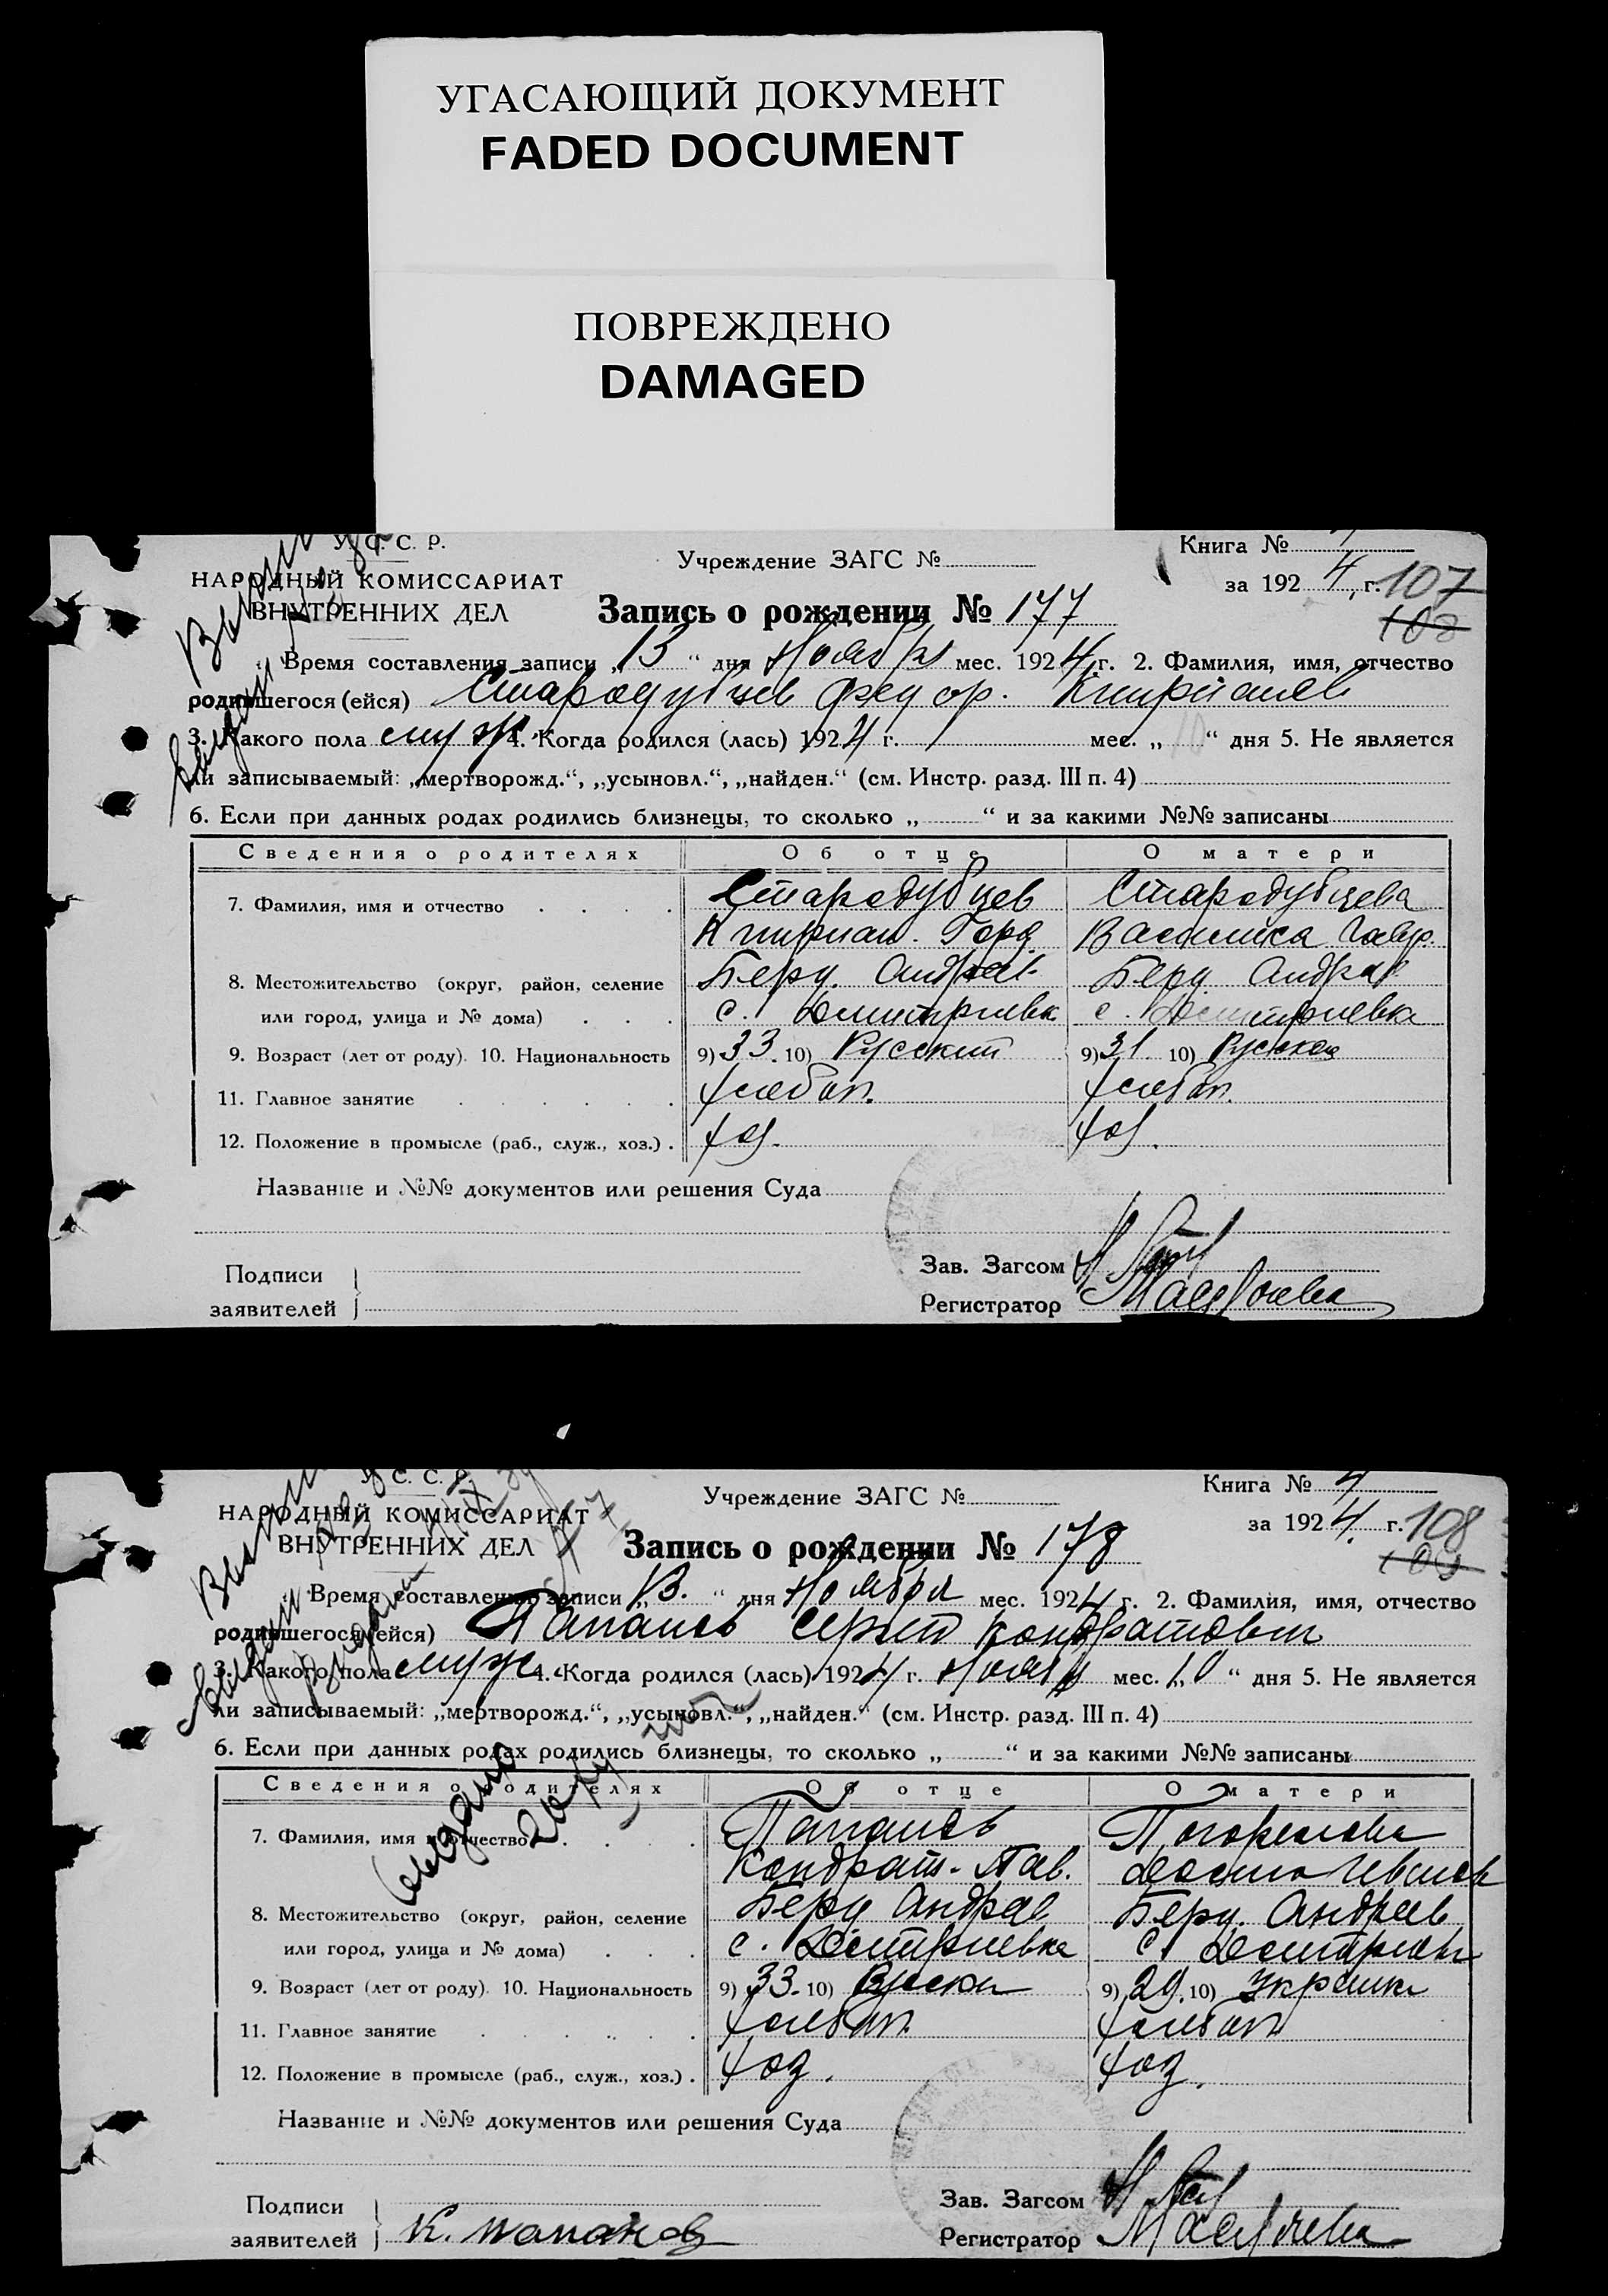 УГАСАЮЩИЙ ДОКУМЕНТ
FADED DOCUMENT
ПОВРЕЖДЕНО
DAMAGED
У. С. С. Р.
НАРОДНЫЙ КОМИССАРИАТ
ВНУТРЕННИХ ДЕЛ
Учреждение ЗАГС №
Книга №
за 1924 г. 107
108
Запись о рождении № 177
Время составления записи „13“ дня Ноября мес. 1924 г. 2. Фамилия, имя, отчество
родившегося (ейся) Стародубцев Федор.
3. Какого пола муж. 4. Когда родился (лась) 1924 г. мес. „10“ дня 5. Не является
ли записываемый: „мертворожд.“, „усыновл.“, „найден.“ (см. Инстр. разд. III п. 4)
6. Если при данных родах родились близнецы, то сколько „ “ и за какими №№ записаны
Сведения о родителях Об отце О матери
7. Фамилия, имя и отчество Стародубцев Стародубцева
Горд. Василиса Гавр.
8. Местожительство (округ, район, селение Берд. Андреев. Берд. Андреев
или город, улица и № дома) с. Дмитриевка с. Дмитриевка
9. Возраст (лет от роду). 10. Национальность 9) 33. 10) Русский 9) 31 10) Русская
11. Главное занятие хлебоп. хлебоп.
12. Положение в промысле (раб., служ., хоз.). хоз. хоз.
Название и №№ документов или решения Суда
Подписи
заявителей
Зав. Загсом
Регистратор
У. С. С. Р.
НАРОДНЫЙ КОМИССАРИАТ
ВНУТРЕННИХ ДЕЛ
Учреждение ЗАГС №
Книга № 4
за 1924. г. 108
109
Запись о рождении № 178
Время составления записи „13.“ дня Ноября мес. 1924 г. 2. Фамилия, имя, отчество
родившегося (ейся) Папанов Сергей Кондратович
3. Какого пола муж. 4. Когда родился (лась) 1924 г. Ноября мес. „10“ дня 5. Не является
ли записываемый: „мертворожд.“, „усыновл.“, „найден.“ (см. Инстр. разд. III п. 4)
6. Если при данных родах родились близнецы, то сколько „ “ и за какими №№ записаны
Сведения о родителях Об отце О матери
7. Фамилия, имя и отчество Папанов Погорелова
Кондрат. Пав.
8. Местожительство (округ, район, селение Берд Андреев Берд. Андреев
или город, улица и № дома) с. Дмитриевка с. Дмитриевка
9. Возраст (лет от роду). 10. Национальность 9) 33. 10) Русски 9) 29. 10) Украинка
11. Главное занятие хлебоп. хлебоп
12. Положение в промысле (раб., служ., хоз.). хоз. хоз.
Название и №№ документов или решения Суда
Подписи
заявителей К. Папанов
Зав. Загсом
Регистратор